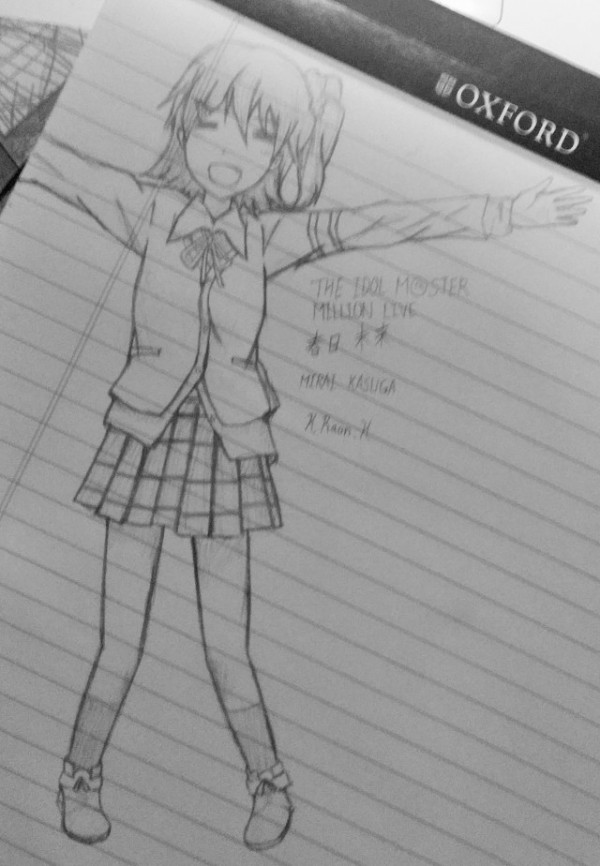 OXFORD
THE IDOL M@STER
MILLION LIVE
春日 未来
MIRAI KASUGA